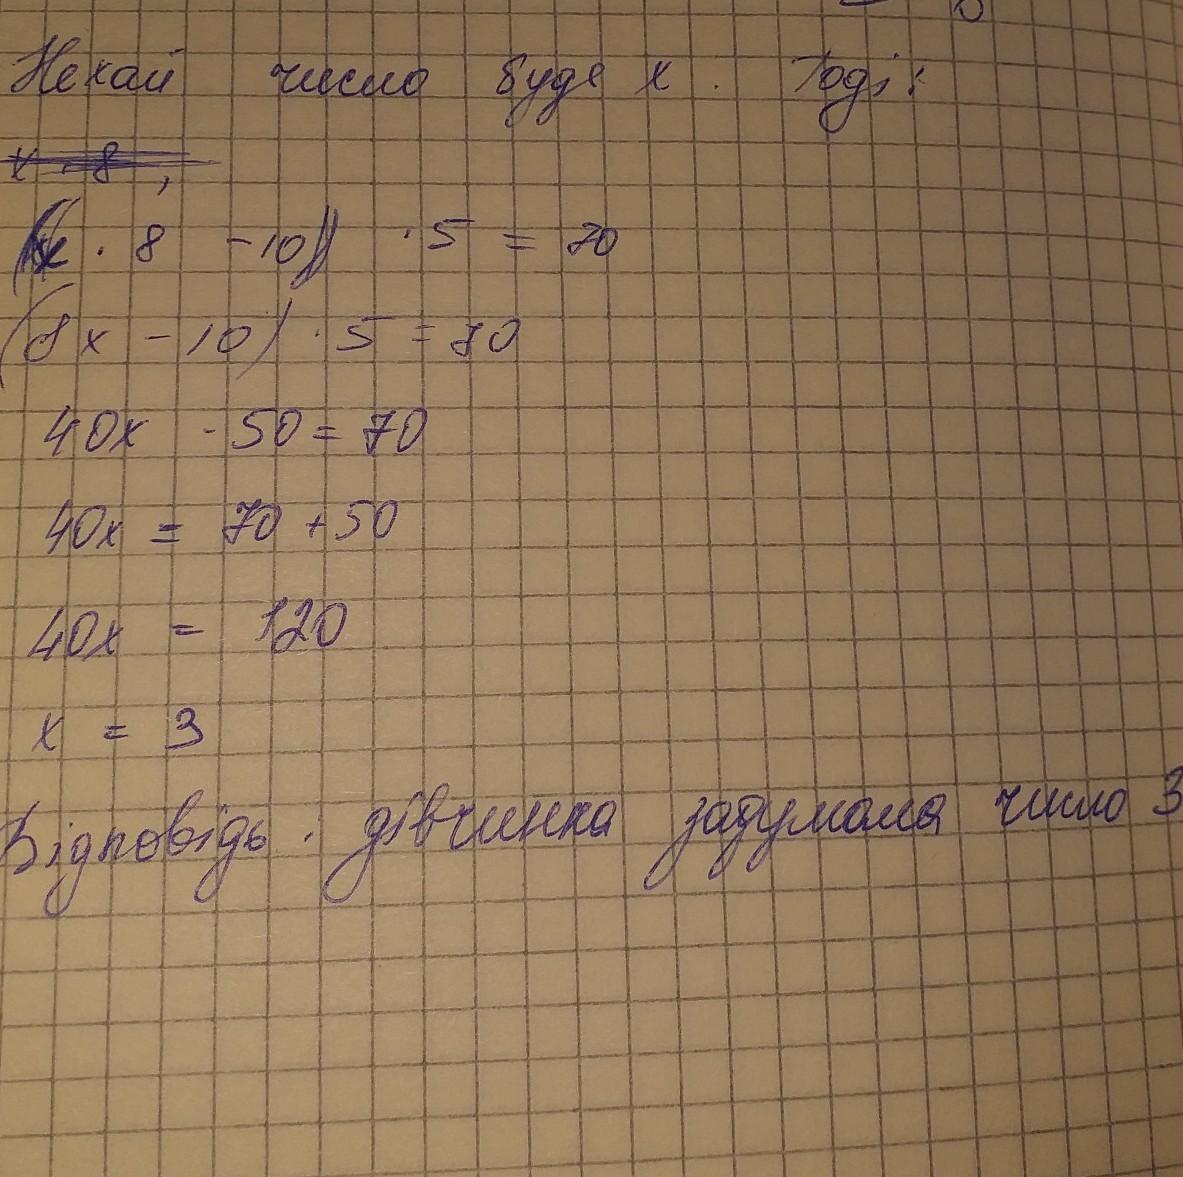 Нехай число буде x. Тоді:
x · 8,
(x · 8 - 10) · 5 = 70
(8x - 10) · 5 = 70
40x - 50 = 70
40x = 70 + 50
40x = 120
x = 3
Відповідь: дівчинка задумала число 3